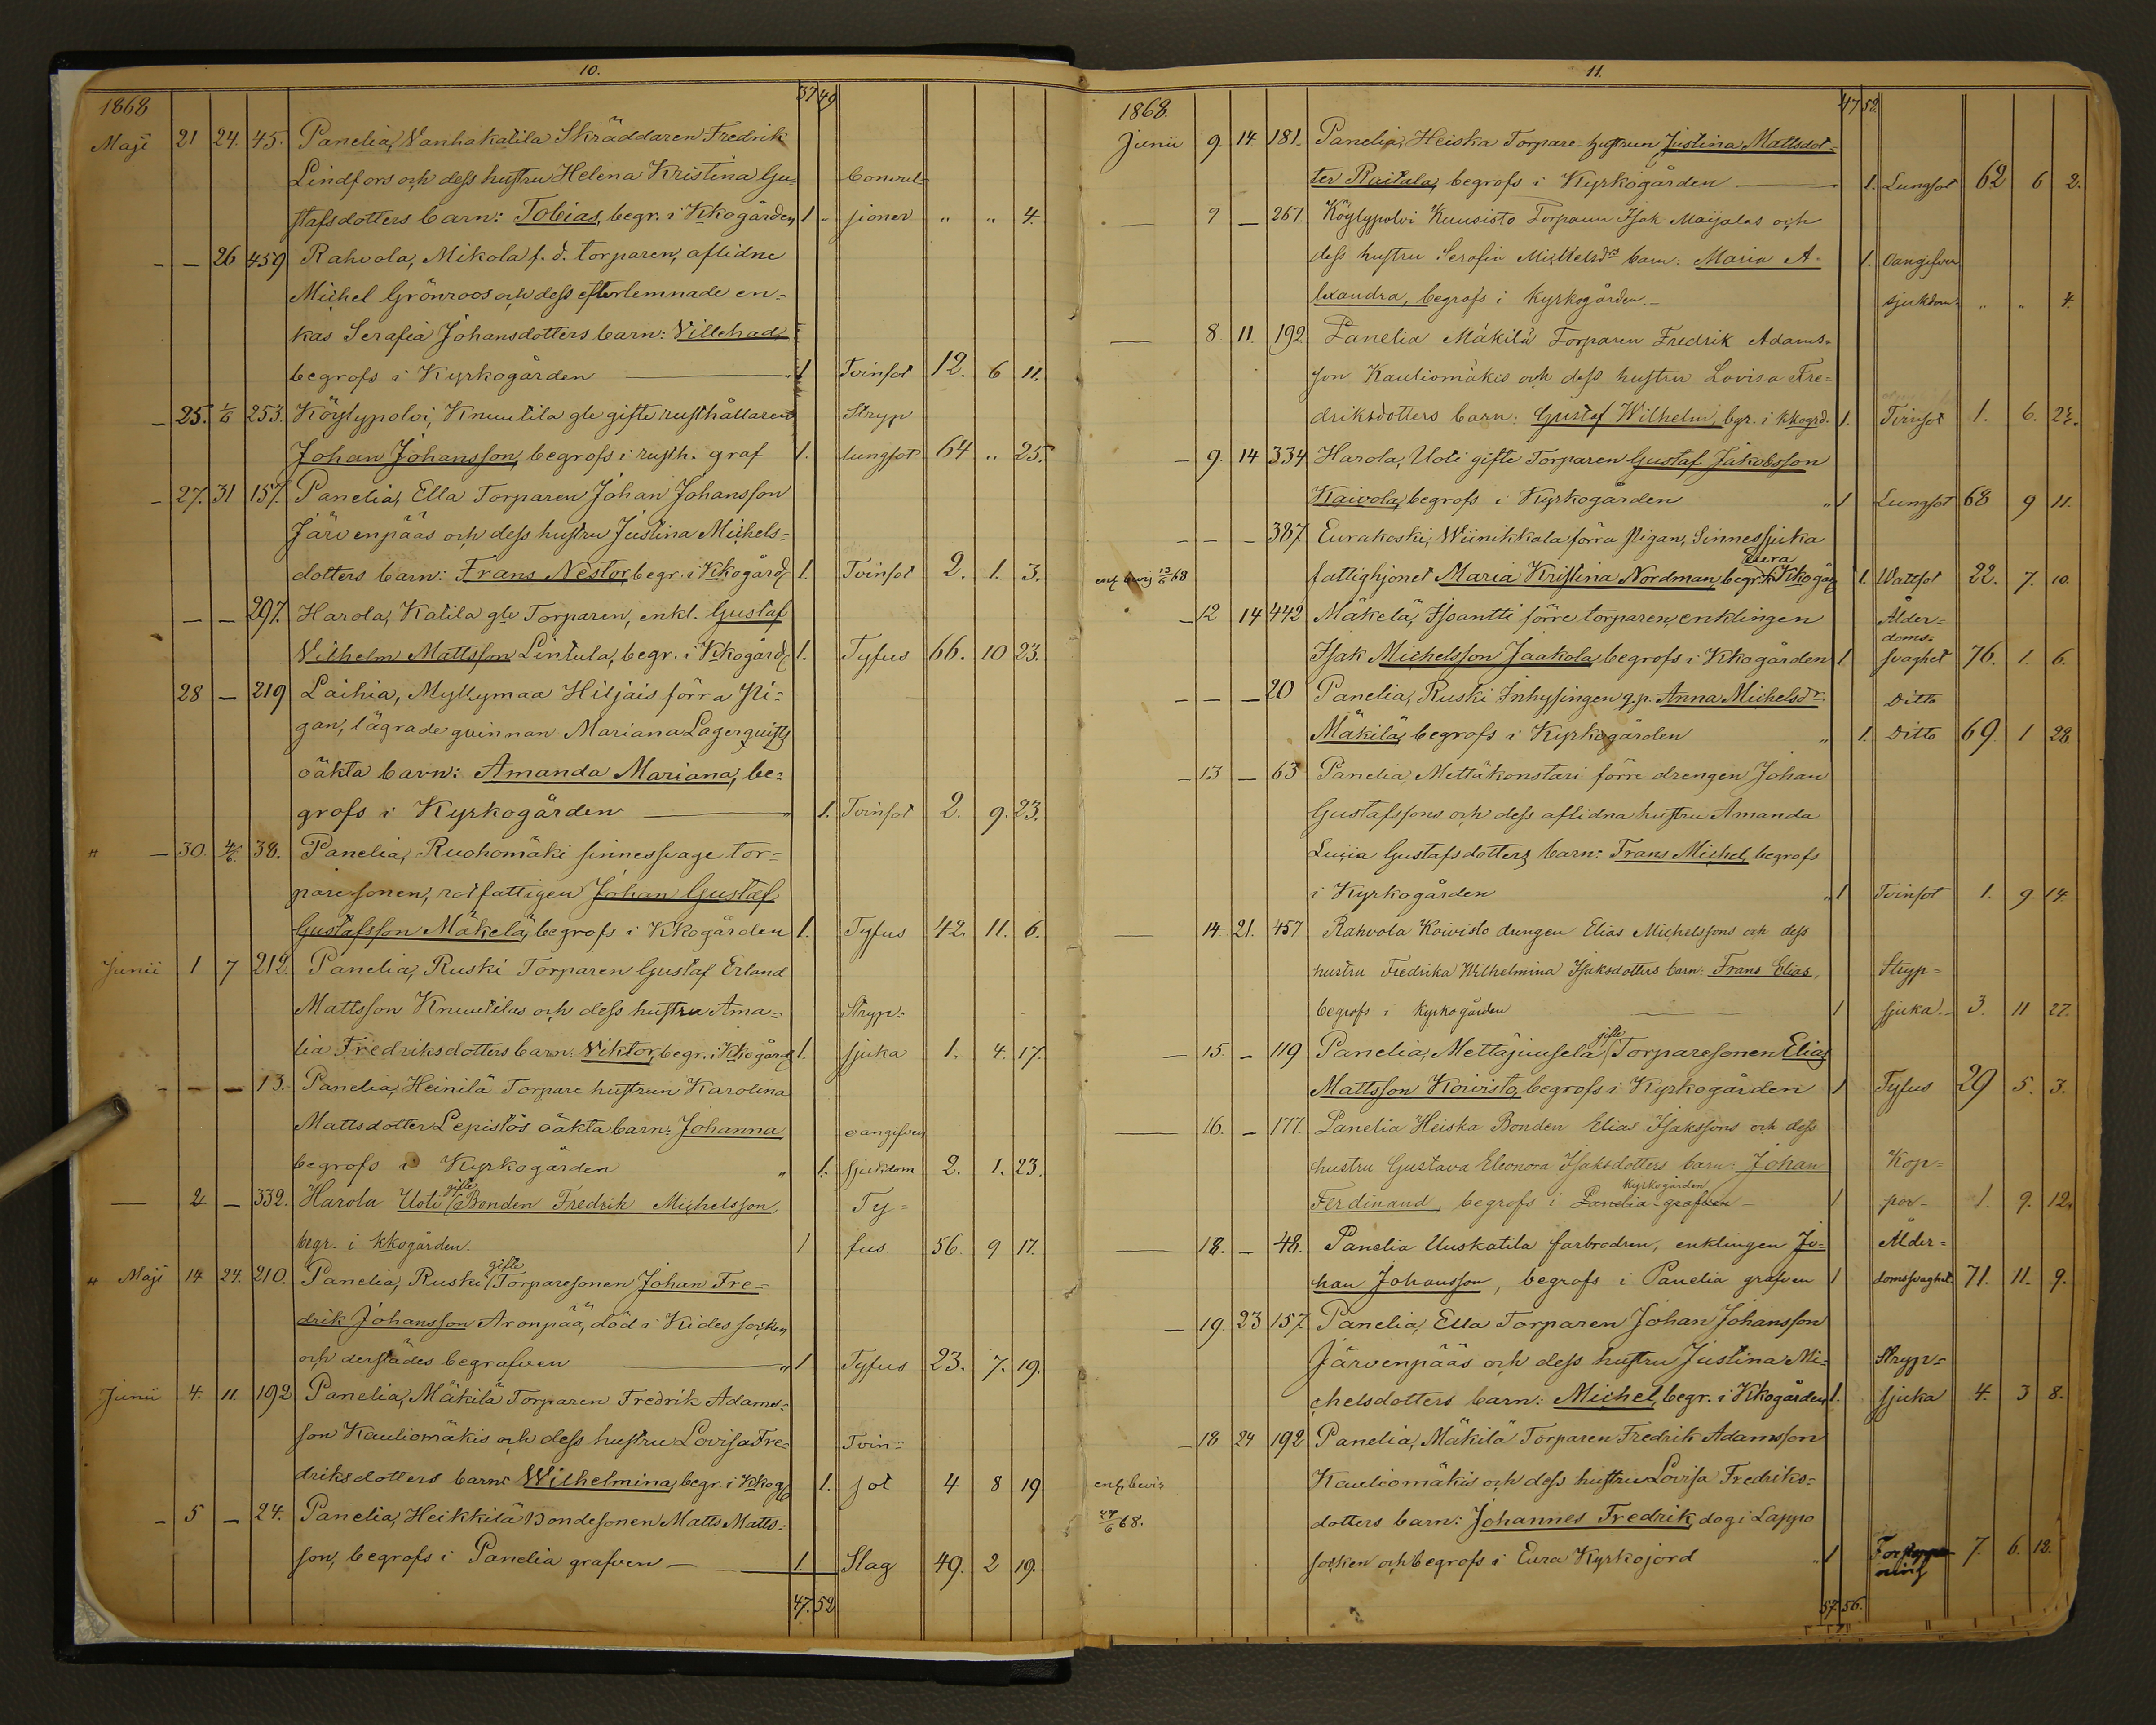 10.
1868 37 49
Maji 21 24. 45. Panelia, Vanhakatila Skräddaren Fredrik
Lindfors och dess hustru Helena Kristina Gu= Convul=
stafsdotters barn: Tobias, begr. i Kkogården, 1 - sioner " " 4.
- - 26 459 Rahvola, Mikola f. d. torparen, aflidne
Michel Grönroos och dess efterlemnade en=
kas Serafia Johansdotters barn: Villehad,
begrofs i Kyrkogården 1 Tvinsot 12. 6 11.
- 25. 1/6 253. Köylypolvi, Knuutila gle gifte rusthållaren Stryp
Johan Johansson, begrofs i rusth. graf 1. lungsot 64 " 25.
- 27. 31 157. Panelia, Ella Torparen Johan Johansson
Järvenpääs och dess hustru Justina Michels=
dotters barn: Frans Nestor, begr. i Kkogård 1. Tvinsot 2. 1. 3.
- - 297. Harola, Katila gle Torparen, enkl. Gustaf
Vilhelm Mattsson Lintula, begr. i Kkogård 1. Tyfus 66. 10 23.
28 - 219 Laihia, Myllymaa Hiljais förra Pi=
gan, lägrade qvinnan Mariana Lagerquists
oäkta barn: Amanda Mariana, be=
grofs i Kyrkogården 1. Tvinsot 2. 9. 23.
" - 30. 4/6 38. Panelia, Ruohomäki sinnessvage tor=
paresonen, rotfattigen Johan Gustaf
Gustafsson Mäkelä, begrofs i Kkogården 1. Tyfus 42. 11. 6.
Junii 1 7 212. Panelia, Ruski Torparen Gustaf Erland
Mattsson Knuutilas och dess hustru Ama= Stryp=
lia Fredriksdotters barn: Viktor, begr. i Kkogård 1. sjuka 1. 4. 17.
- - - 13. Panelia, Heinilä Torpare hustrun Karolina
Mattsdotter Lepistös oäkta barn: Johanna oangifven
begrofs i Kyrkogården " 1. sjukdom 2. 1. 23.
- 2 - 332. Harola Uoti gifte Bonden Fredrik Michelsson, Ty=
begr. i kkogården. 1 fus. 56. 9 17.
" Maji 14 24. 210. Panelia, Ruski gifte Torparesonen Johan Fre=
drik Johansson Aronpää, död i Kides socken
och derstädes begrafven " 1 Tyfus 23. 7. 19.
Junii 4. 11. 192 Panelia, Mäkilä Torparen Fredrik Adams=
son Kauliomäkis och dess hustru Lovisa Fre= Tvin=
driksdotters barn: Wilhelmina, begr. i Kkog 1. sot 4 8 19
- 5 - 24. Panelia, Heikkilä Bondesonen Matts Matts=
son, begrofs i Panelia grafven - 1. Slag 49. 2 19.
47. 52
11.
1868. 47 52
Junii 9. 14. 181. Panelia, Heiska Torpare-hustrun Justina Mattsdot=
ter Raitala, begrofs i Kyrkogården 1. Lungsot 62 6 2.
- 9 - 267. Köylypolvi Kuusisto Torparen Isak Maijalas och
dess hustru Serafia Michelsdrs barn: Maria A= 1. Oangifven
lexandra, begrofs i Kyrkogården. - sjukdom. " " 4.
- 8 11. 192 Panelia Mäkilä Torparen Fredrik Adams=
son Kauliomäkis och dess hustru Lovisa Fre=
driksdotters barn: Gustaf Wilhelm, bgr. i kkogrd. 1. Tvinsot 1. 6.
- 9. 14 334 Harola, Uoti gifte Torparen Gustaf Jakobsson
Kaivola, begrofs i Kyrkogården " 1 Lungsot 68 9 11.
- - - 387 Eurakoski, Wiinikkala förra Pigan, Sinnessjuka
enl bevis 12/6 68 fattighjonet Maria Kristina Nordman, begr. i Eura Kkogår 1. Wattsot 22. 7. 10.
- 12 14 442 Mäkelä, Isoantti förre torparen, enklingen Ålder=
doms=
Isak Michelsson Jaakola begrofs i Kkogården 1 svaghet 76. 1. 6.
- - - 20 Panelia, Ruski Inhysingen g.p. Anna Michelsdr Ditto
Mäkilä, begrofs i Kyrkogården " 1. Ditto 69. 1 28.
- 13 - 63 Panelia, Mettäkonstari förre drengen Johan
Gustafssons och dess aflidna hustru Amanda
Lucia Gustafsdotters barn: Frans Michel, begrofs
i Kyrkogården " 1 Tvinsot 1. 9. 14.
- 14. 21. 457 Rahvola Koivisto drengen Elias Michelssons och dess
hustru Fredrika Wilhelmina Isaksdotters barn: Frans Elias, Stryp=
begrofs i Kyrkogården 1 sjuka. - 3. 11 27.
- 15. - 119 Panelia, Mettäjuusela gifte Torparesonen Elias
Mattsson Koivisto, begrofs i Kyrkogården 1 Tyfus 29 5. 3.
- 16. - 177. Panelia Heiska Bonden Elias Isakssons och dess
hustru Gustava Eleonora Isaksdotters barn: Johan Kop=
Ferdinand, begrofs i Panelia grafven kyrkogården - 1 por - 1. 9. 12.
- 18. - 48. Panelia Uuskatila farbrodren, enklingen Jo= Ålder=
han Johansson, begrofs i Panelia grafven 1 domsvaghet 71. 11. 9.
- 19. 23 157. Panelia, Ella Torparen Johan Johansson
Järvenpääs och dess hustru Justina Mi= Stryp=
chelsdotters barn: Michel, begr. i Kkogården 1. sjuka 4. 3 8.
- 18 24 192 Panelia, Mäkilä Torparen Fredrik Adamsson
enl. bevis Kauliomäkis och dess hustru Lovisa Fredriks=
24/6 68. dotters barn: Johannes Fredrik, dog i Lappo
socken och begrofs i Eura Kyrkojord " 1 7. 6. 18.
57. 56.